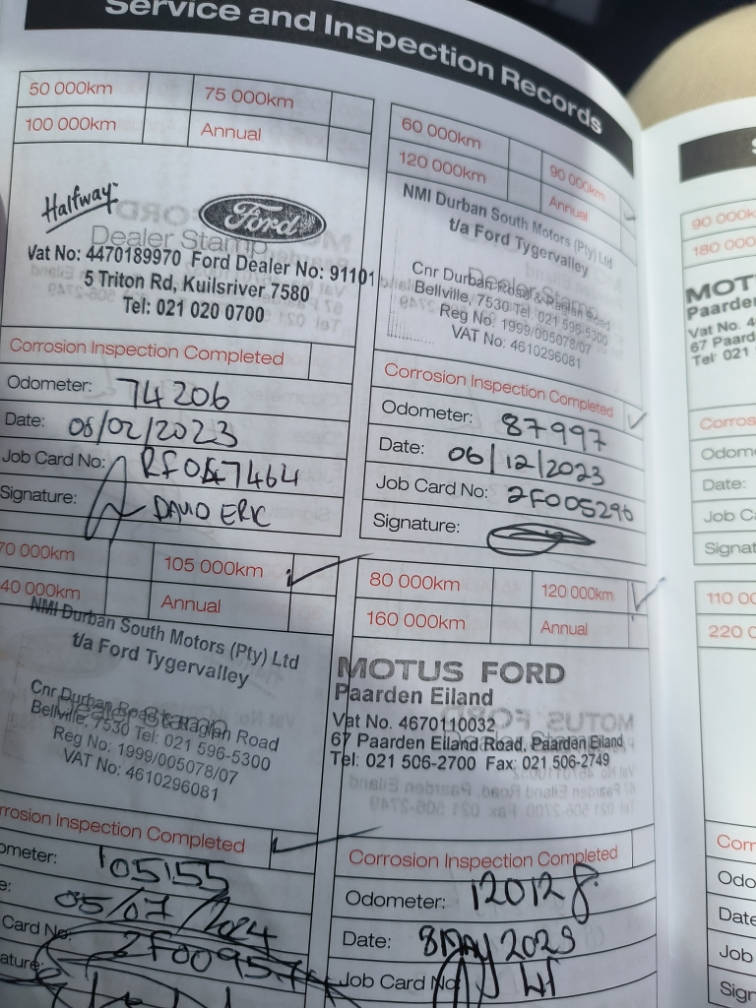 Service and Inspection Records
50 000km
75 000km
100 000km
Annual
Halfway
Ford
Dealer Stamp
Vat No: 4470189970 Ford Dealer No: 91101
5 Triton Rd, Kuilsriver 7580
Tel: 021 020 0700
Corrosion Inspection Completed
Odometer: 74206
Date: 06/02/2023
Job Card No:
Signature: DAVID ERIC
60 000km
90 000km
120 000km
Annual
NMI Durban South Motors (Pty) Ltd
t/a Ford Tygervalley
Dealer Stamp
Cnr Durban Road & Raglan Road
Bellville, 7530 Tel: 021 596-5300
Reg No: 1999/005078/07
VAT No: 4610296081
Corrosion Inspection Completed
Odometer: 87997
Date: 06/12/2023
Job Card No: 2F005290
Signature:
70 000km
105 000km
40 000km
Annual
NMI Durban South Motors (Pty) Ltd
t/a Ford Tygervalley
Dealer Stamp
Cnr Durban Road & Raglan Road
Bellville, 7530 Tel: 021 596-5300
Reg No: 1999/005078/07
VAT No: 4610296081
rrosion Inspection Completed
ometer: 105155
e: 05/07/2024
Card No:
ature:
80 000km
120 000km
160 000km
Annual
MOTUS FORD
Paarden Eiland
Vat No. 4670110032
67 Paarden Eiland Road, Paarden Eiland
Tel: 021 506-2700 Fax: 021 506-2749
Corrosion Inspection Completed
Odometer: 120128
Date: 8 MAY
Job Card No
90 000k
180 000
MOT
Paarde
Vat No. 4
67 Paard
Tel: 021
Corros
Odom
Date:
Job C
Signat
110 00
220 0
Corr
Odo
Date
Job
Sign